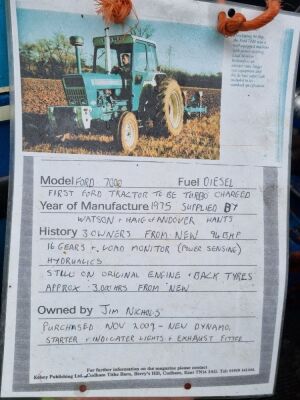 Model FORD 7000 Fuel DIESEL
FIRST FORD TRACTOR TO BE TURBO CHARGED
Year of Manufacture 1975 SUPPLIED BY
WATSON + HAIG of ANDOVER HANTS
History 3 OWNERS FROM NEW 94 BHP
16 GEARS + LOAD MONITOR (POWER SENSING)
HYDRAULICS
STILL ON ORIGINAL ENGINE + BACK TYRES
APPROX 3,000 HRS FROM NEW
Owned by JIM NICHOLS
PURCHASED NOV 2009 - NEW DYNAMO,
STARTER + INDICATER LIGHTS + EXHAUST FITTED
For further information on the magazine please contact
Kelsey Publishing Ltd., Cudham Tithe Barn, Berry's Hill, Cudham, Kent TN16 3AG.